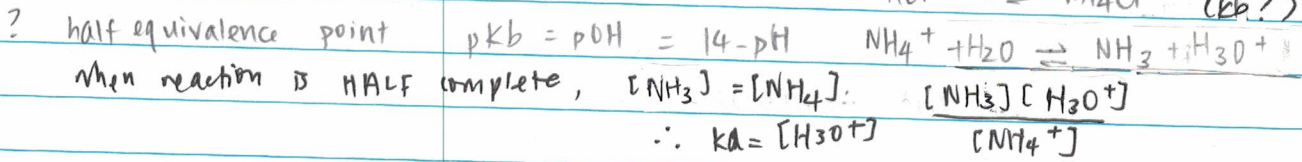 (kb?)
? half equivalence point pKb = pOH = 14-pH NH4+ +H2O ⇌ NH3 + H3O+
When reaction is HALF complete, [NH3] = [NH4]. [NH3][H3O+]
∴ ka = [H3O+] [NH4+]